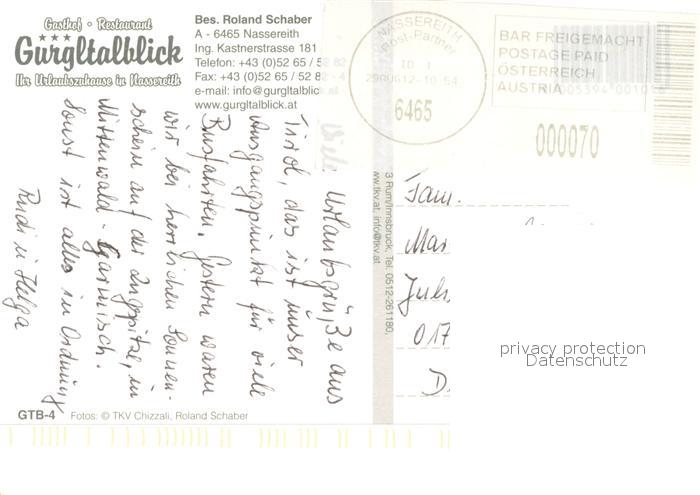 Gasthof · Restaurant
Gurgltalblick
Ihr Urlaubszuhause in Nassereith
Bes. Roland Schaber
A - 6465 Nassereith
Ing. Kastnerstrasse 181
Telefon: +43 (0)52 65 / 52 82
Fax: +43 (0)52 65 / 52 82 - 4
e-mail: info@gurgltalblick.at
www.gurgltalblick.at
NASSEREITH
Post-Partner
29AUG12-10.54
6465
BAR FREIGEMACHT
POSTAGE PAID
ÖSTERREICH
AUSTRIA
000070
Viele Urlaubsgrüße aus
Tirol, das ist unser
Ausgangspunkt für viele
Busfahrten. Gestern waren
wir bei herrlichen Sonnen-
schein auf der Zugspitze, in
Mittenwald - Garmisch.
Sonst ist alles in Ordnung
Rudi u Helga
3 Rum/Innsbruck, Tel. 0512-261180,
ww.tkv.at, info@tkv.at
Fam.
017
D
privacy protection
Datenschutz
GTB-4 Fotos: © TKV Chizzali, Roland Schaber